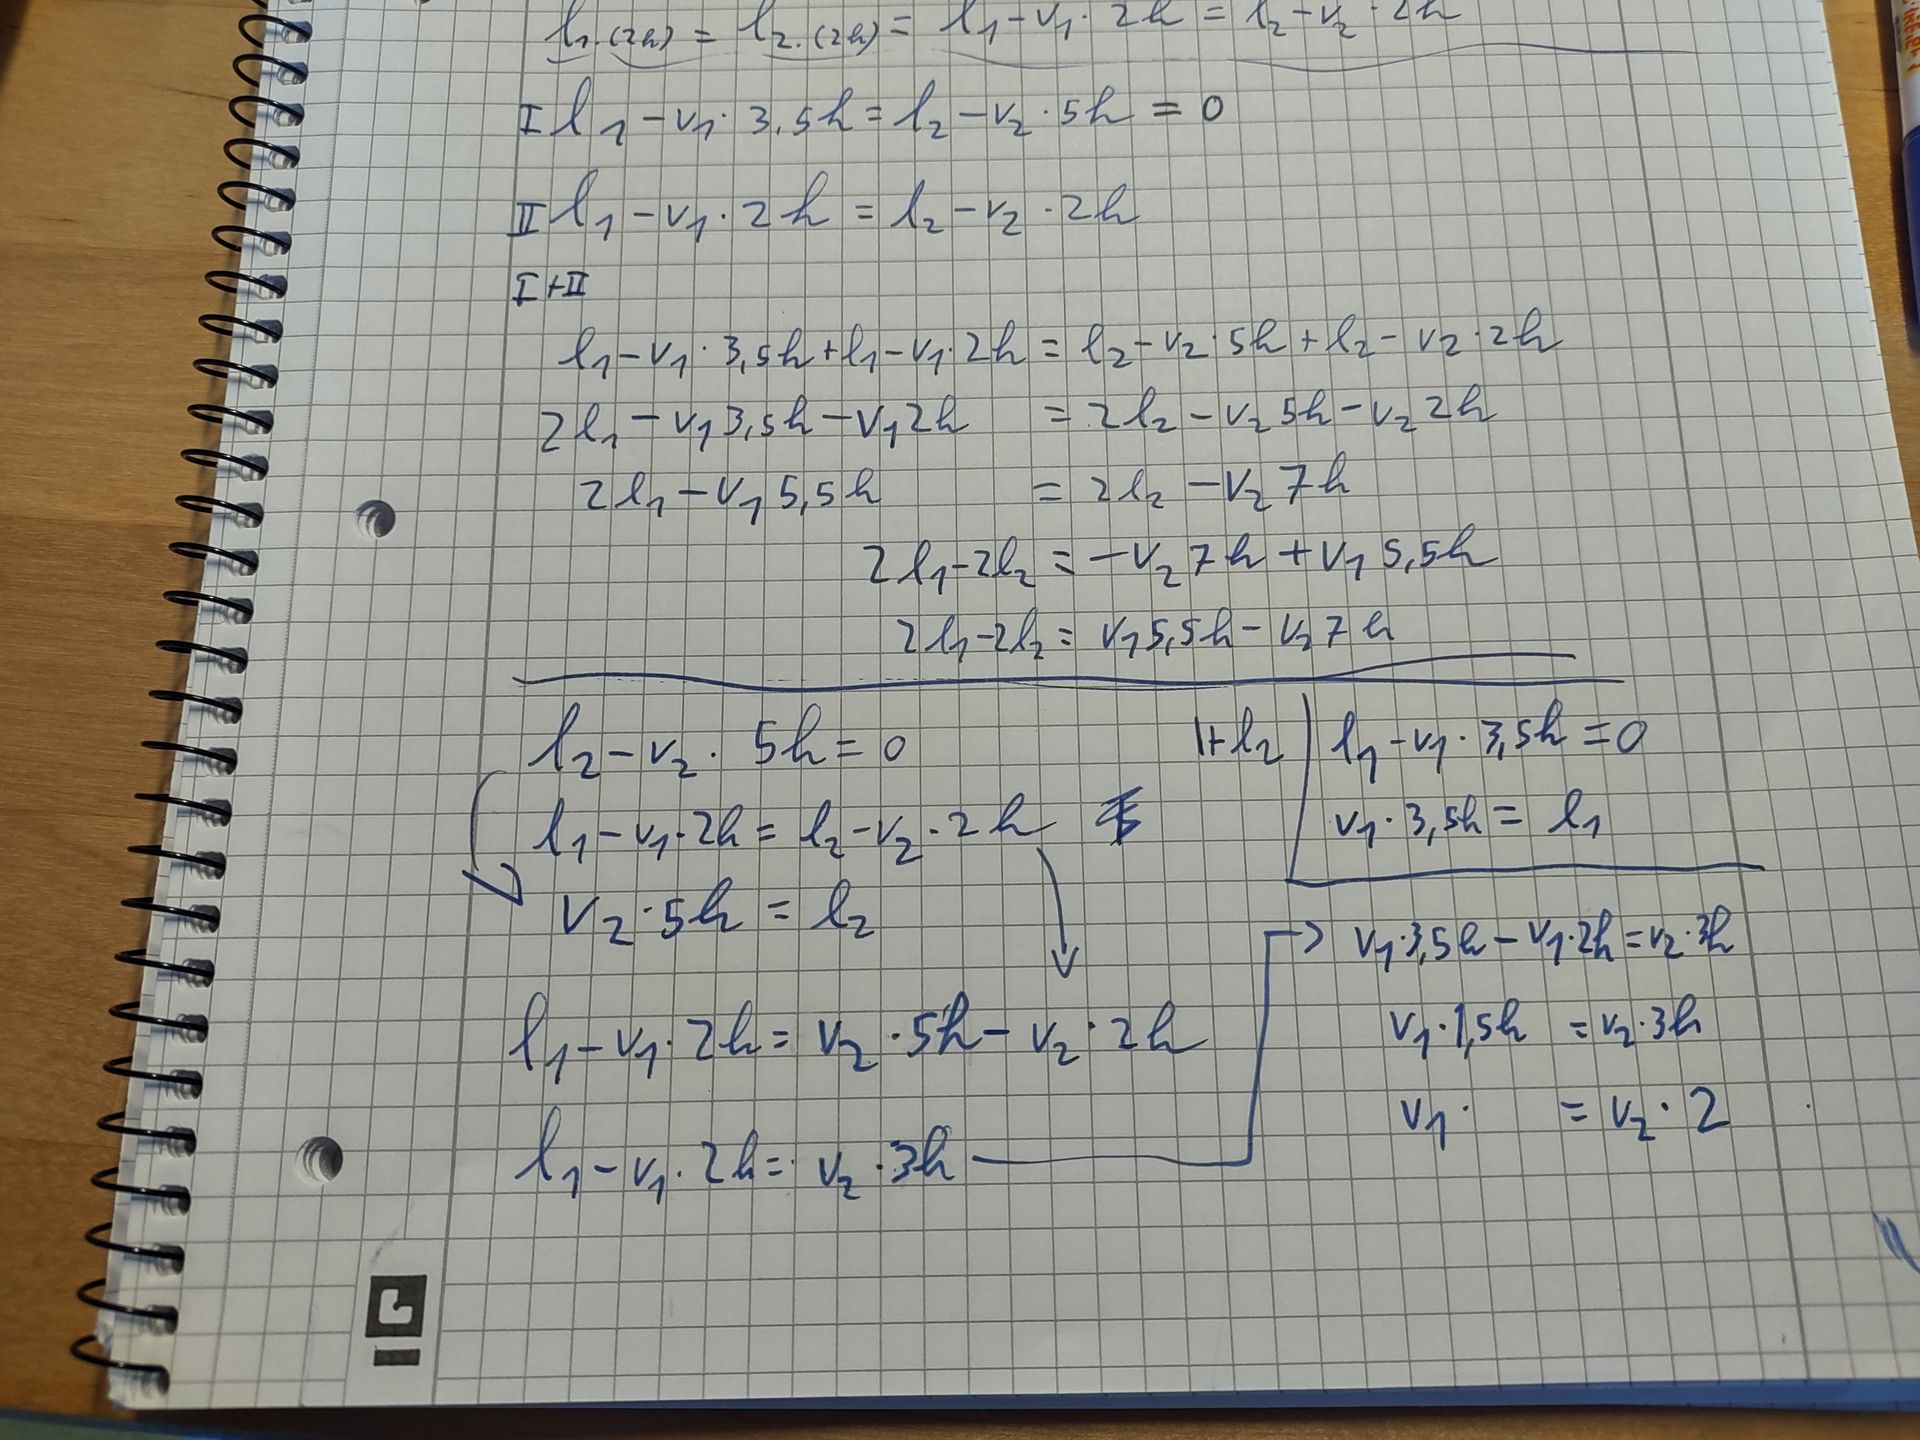 l₁.(2h) = l₂.(2h) = l₁ - v₁ · 2h = l₂ - v₂ · 2h
I l₁ - v₁ · 3,5h = l₂ - v₂ · 5h = 0
II l₁ - v₁ · 2h = l₂ - v₂ · 2h
I + II
l₁ - v₁ · 3,5h + l₁ - v₁ · 2h = l₂ - v₂ · 5h + l₂ - v₂ · 2h
2l₁ - v₁ 3,5h - v₁ 2h = 2l₂ - v₂ 5h - v₂ 2h
2l₁ - v₁ 5,5h = 2l₂ - v₂ 7h
2l₁ - 2l₂ = -v₂ 7h + v₁ 5,5h
2l₁ - 2l₂ = v₁ 5,5h - v₂ 7h
l₂ - v₂ · 5h = 0 |+l₂
l₁ - v₁ · 2h = l₂ - v₂ · 2h
v₂ · 5h = l₂
l₁ - v₁ · 2h = v₂ · 5h - v₂ · 2h
l₁ - v₁ · 2h = v₂ · 3h
l₁ - v₁ · 3,5h = 0
v₁ · 3,5h = l₁
→ v₁ · 3,5h - v₁ · 2h = v₂ · 3h
v₁ · 1,5h = v₂ · 3h
v₁ · = v₂ · 2